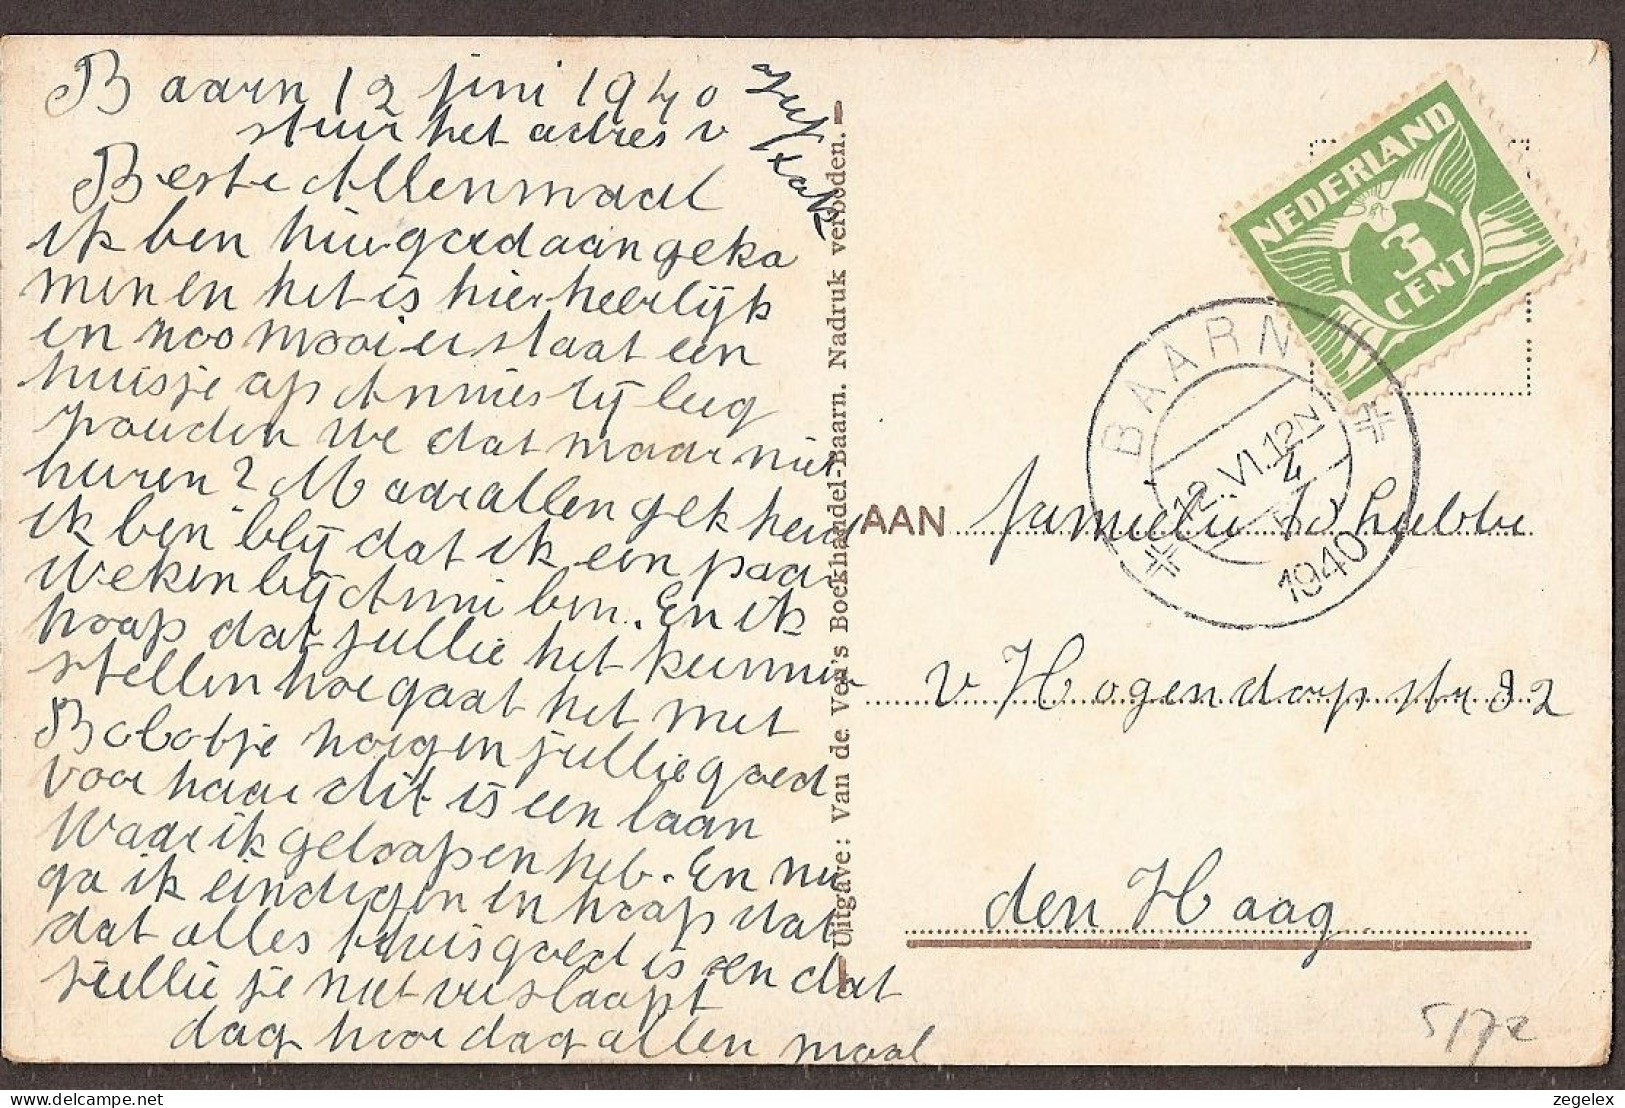 Baarn 12 juni 1940
stuur het adres v
juf
Beste Allenmaal
ik ben hier goed aangeko
men en het is hier heerlijk
en zoo mooi er staat een
huisje op Annies tij leeg
zouden we dat maar niet
huren? Maar allen gek heid
ik ben blij dat ik een paar
weken bij Anni ben. En ik
hoop dat jullie het kunnen
stellen hoe gaat het met
Bolobtje zorgen jullie goed
voor haar dit is een laan
waar ik geloopen heb. En nu
ga ik eindigen en hoop dat
dat alles thuis goed is en dat
jullie je niet verslaapt
dag hoor dag allen maal
Uitgave: Van de Ven's Boekhandel-Baarn. Nadruk verboden.
NEDERLAND
3
CENT
BAARN
12.VI.12N
4
1940
AAN familie Schubbe
v Hogendorpstr 82
den Haag
5/72
delcampe.net
zegelex